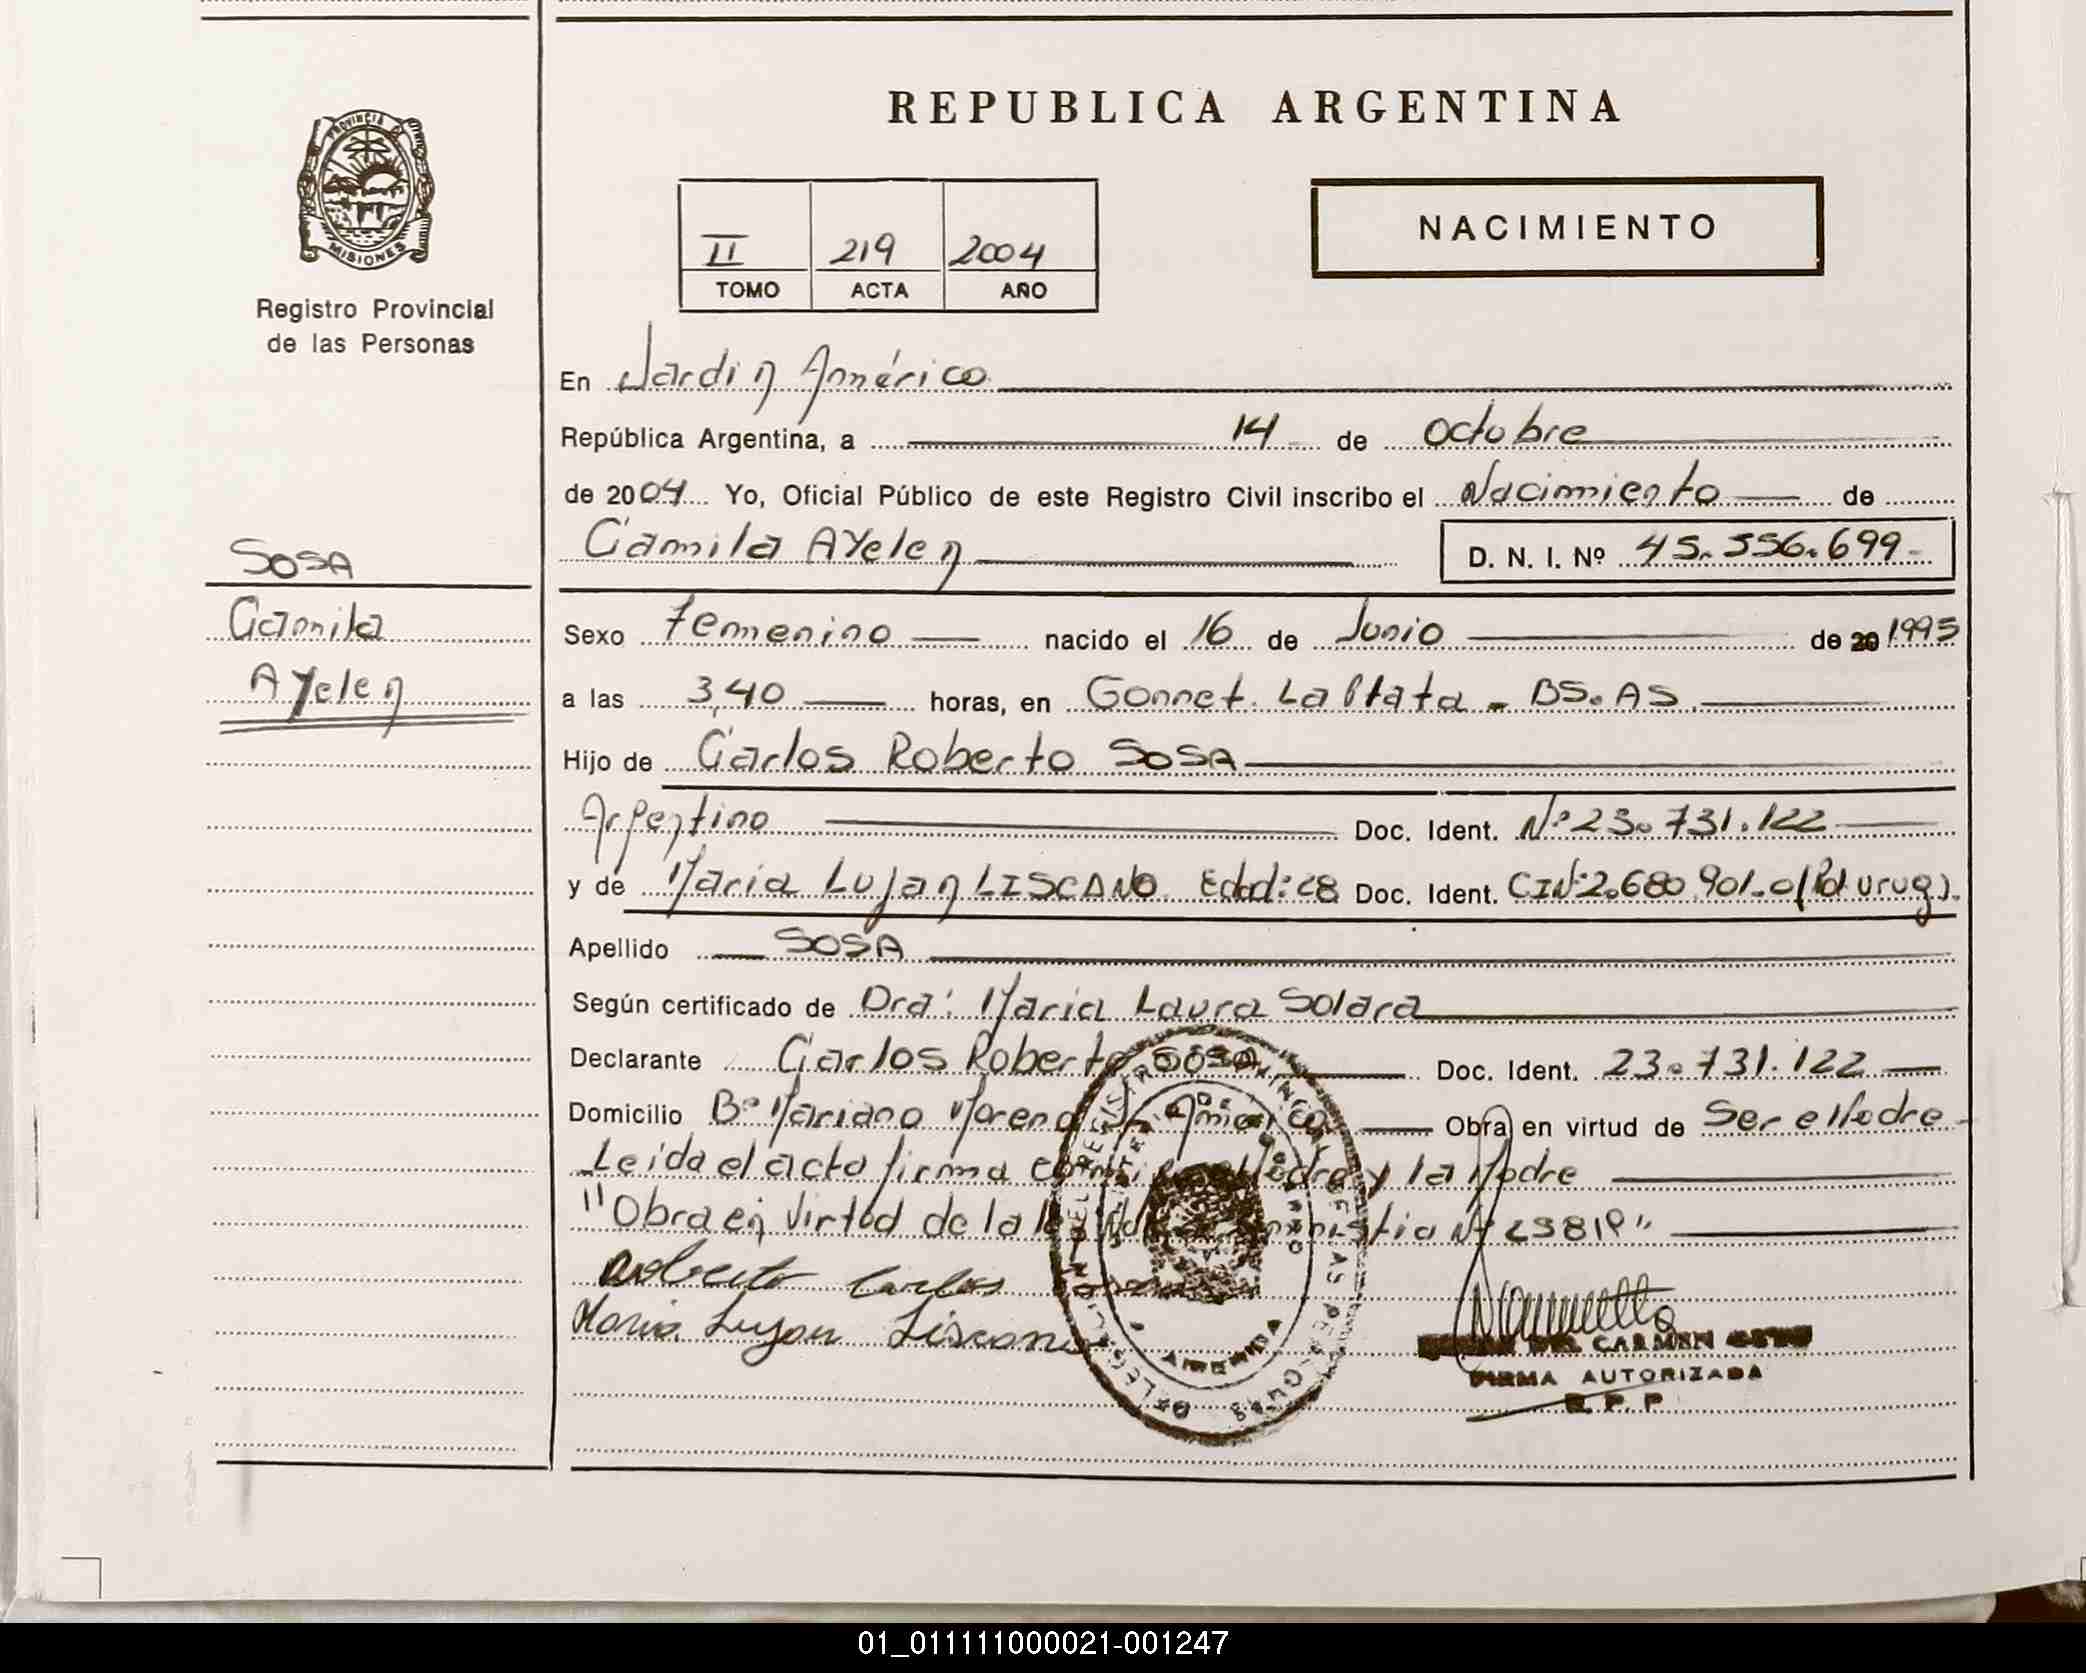 REPUBLICA ARGENTINA
PROVINCIA DE
MISIONES
Registro Provincial
de las Personas
II 219 2004
TOMO ACTA AÑO
NACIMIENTO
En Jardin América
República Argentina, a 14 de Octubre
de 2004 Yo, Oficial Público de este Registro Civil inscribo el Nacimiento de
Camila AYelen D. N. I. Nº 45.556.699
SOSA
Camila
AYelen
Sexo Femenino nacido el 16 de Junio de 20 1995
a las 3,40 horas, en Gonnet. La Plata - BS.AS.
Hijo de Carlos Roberto SOSA
Argentino Doc. Ident. Nº 23.731.122
y de Maria Lujan LISCANO Edad: 28 Doc. Ident. CIN: 2.680.901-0 (Pol urug).
Apellido SOSA
Según certificado de Dra: Maria Laura Solara
Declarante Carlos Roberto SOSA Doc. Ident. 23.731.122
Domicilio Bº Mariano Moreno Jn América Obra en virtud de Ser el Padre
Leida el acta firma el Padre y la Madre
"Obra en Virtud de la ley Amnistia Nº 25819"
Roberto Carlos
Maria Lujan Liscano
DEL CARMEN
FIRMA AUTORIZADA
R. P. P
01_011111000021-001247